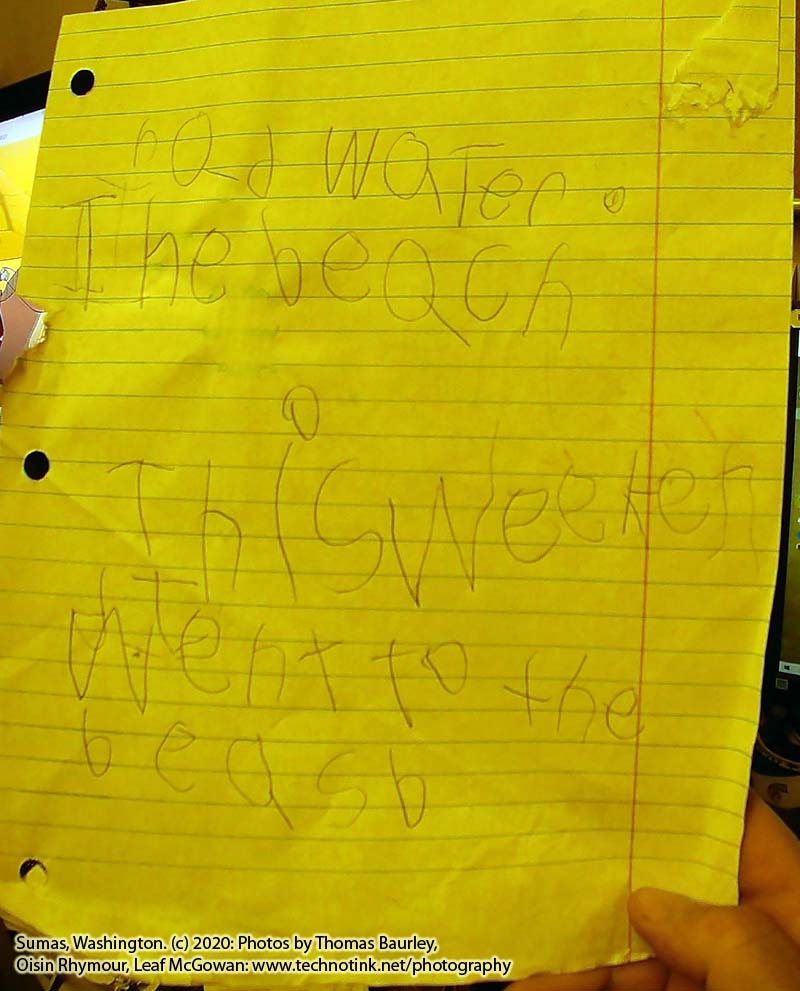 had water.
The beach
This weeken
Went to the
beasb
Sumas, Washington. (c) 2020: Photos by Thomas Baurley,
Oisin Rhymour, Leaf McGowan: www.technotink.net/photography